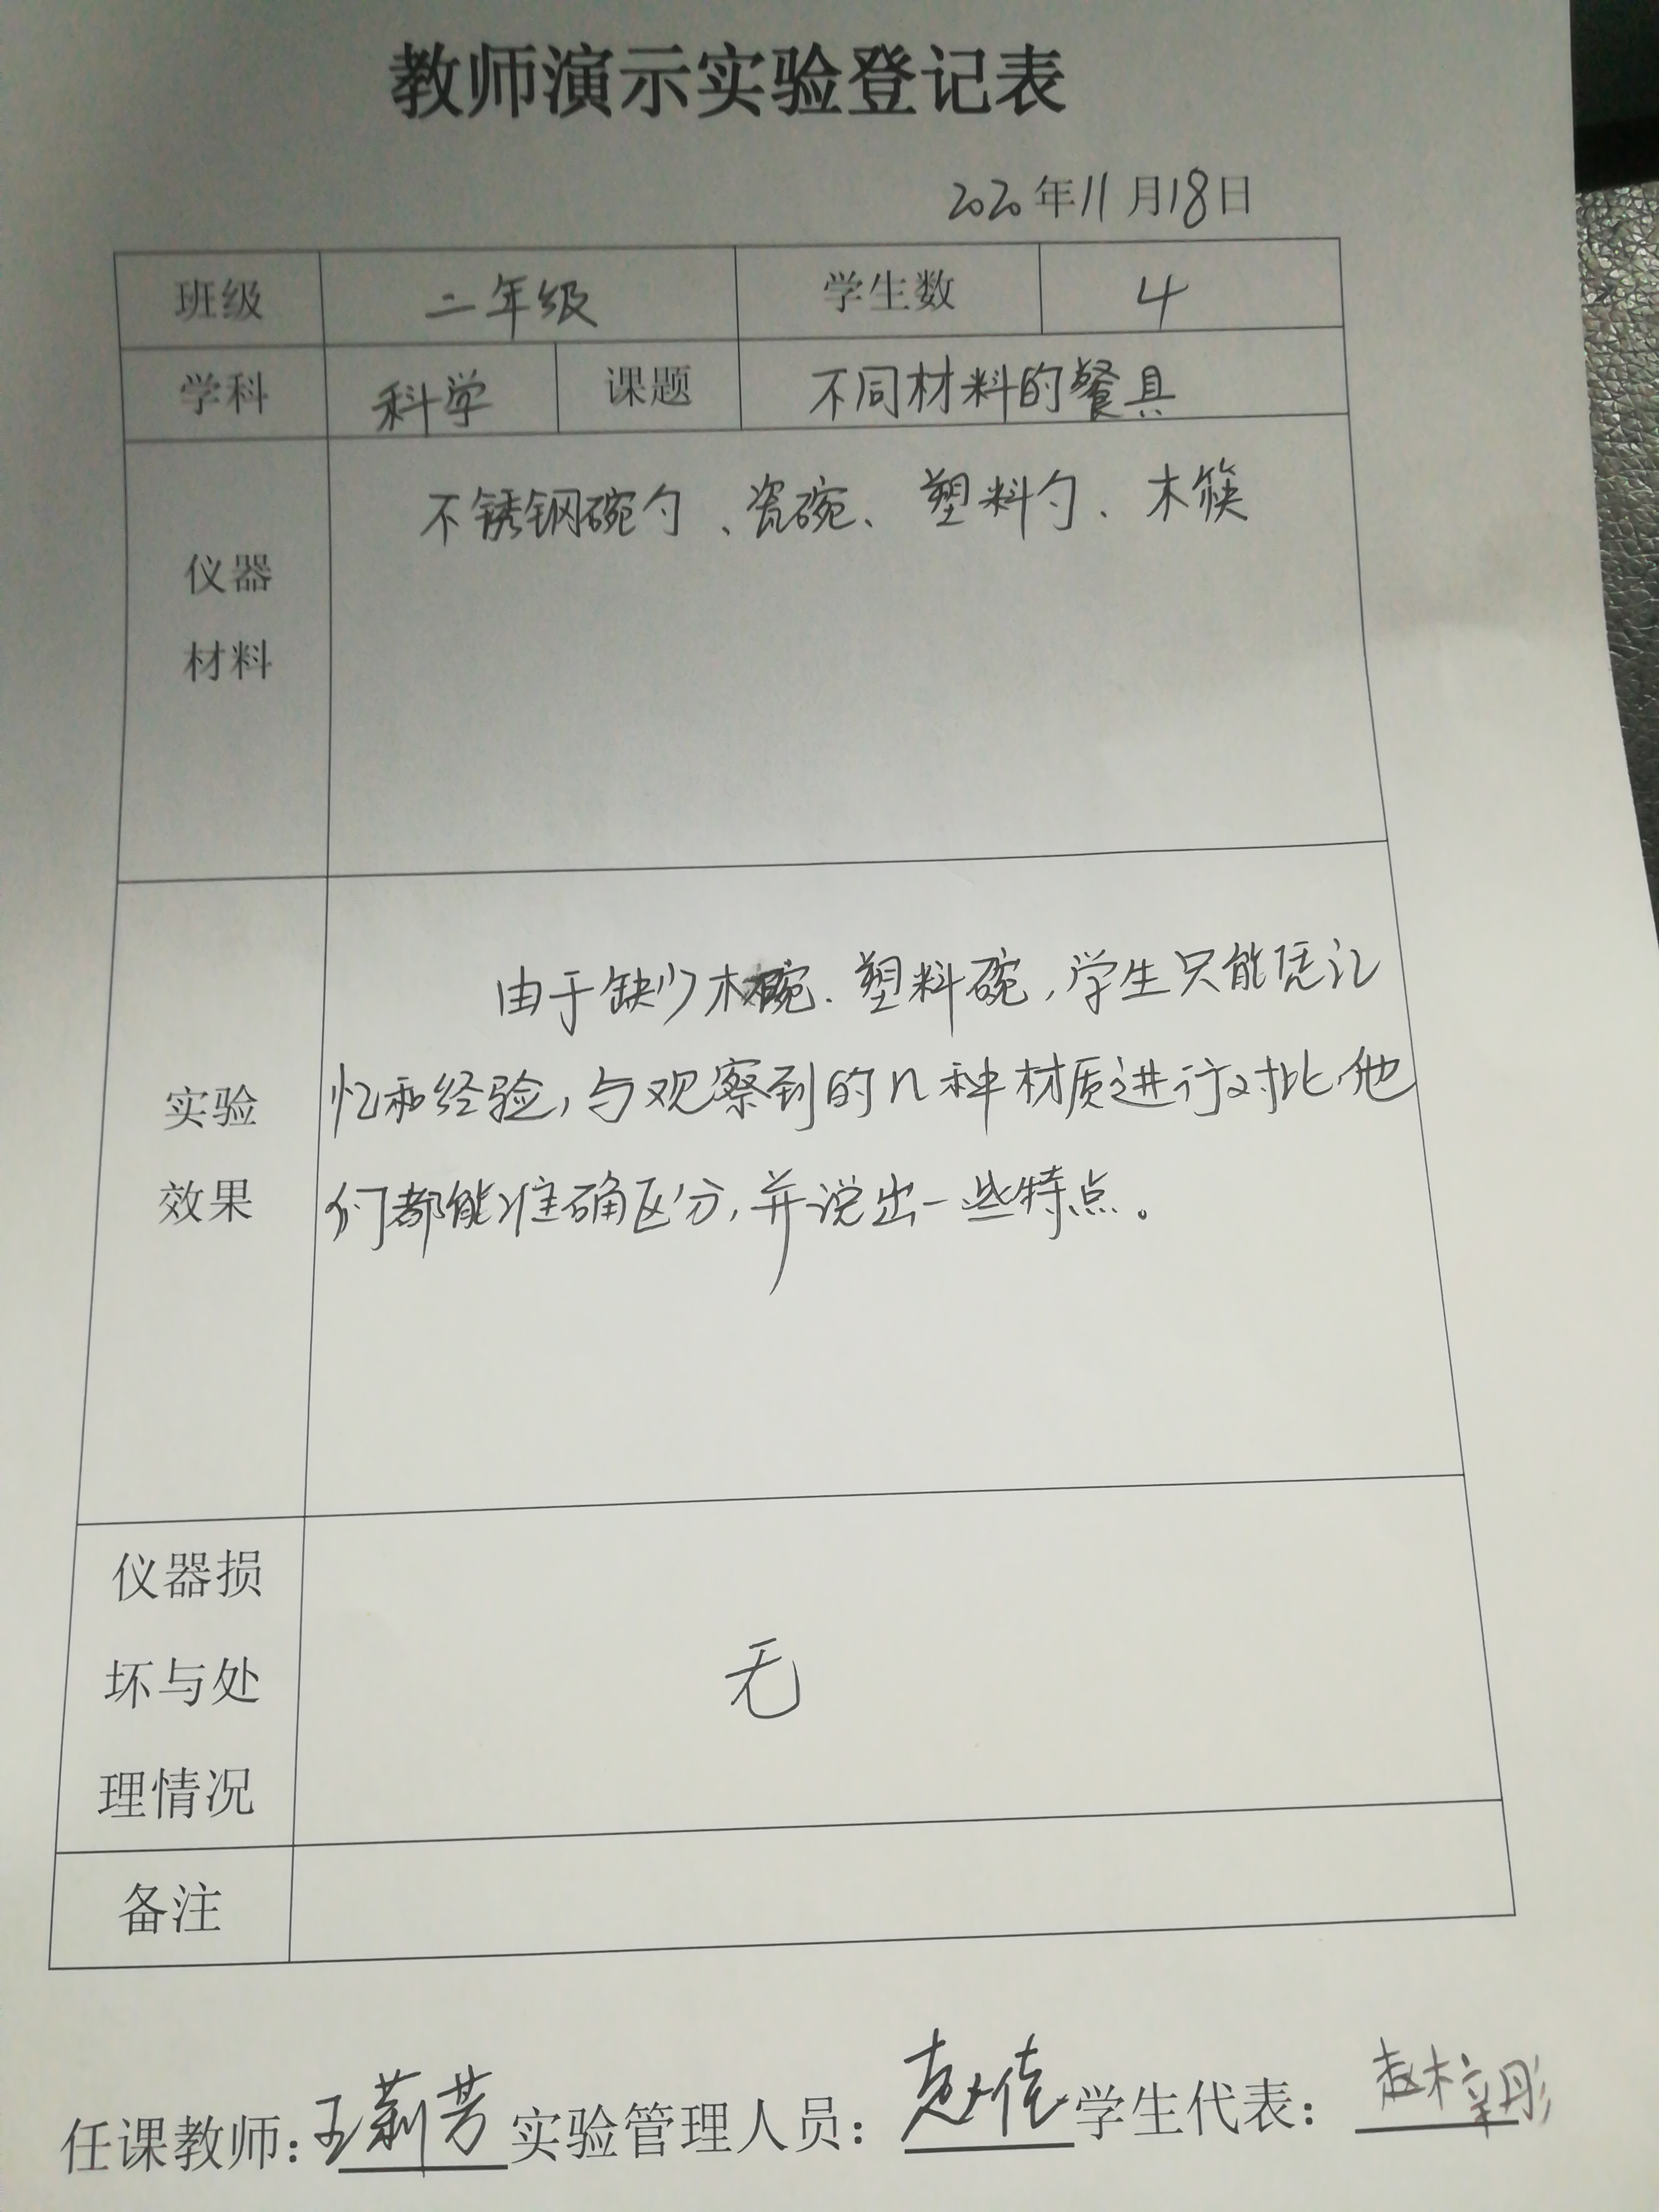 教师演示实验登记表
2020年11月18日
班级 二年级 学生数 4
学科 科学 课题 不同材料的餐具
仪器
材料
不锈钢碗勺、瓷碗、塑料勺、木筷
实验
效果
由于缺少木碗、塑料碗,学生只能凭记
忆和经验,与观察到的几种材质进行对比,他
们都能准确区分,并说出一些特点。
仪器损
坏与处
理情况
无
备注
任课教师:王莉芳 实验管理人员:赵佳 学生代表:赵梓彤